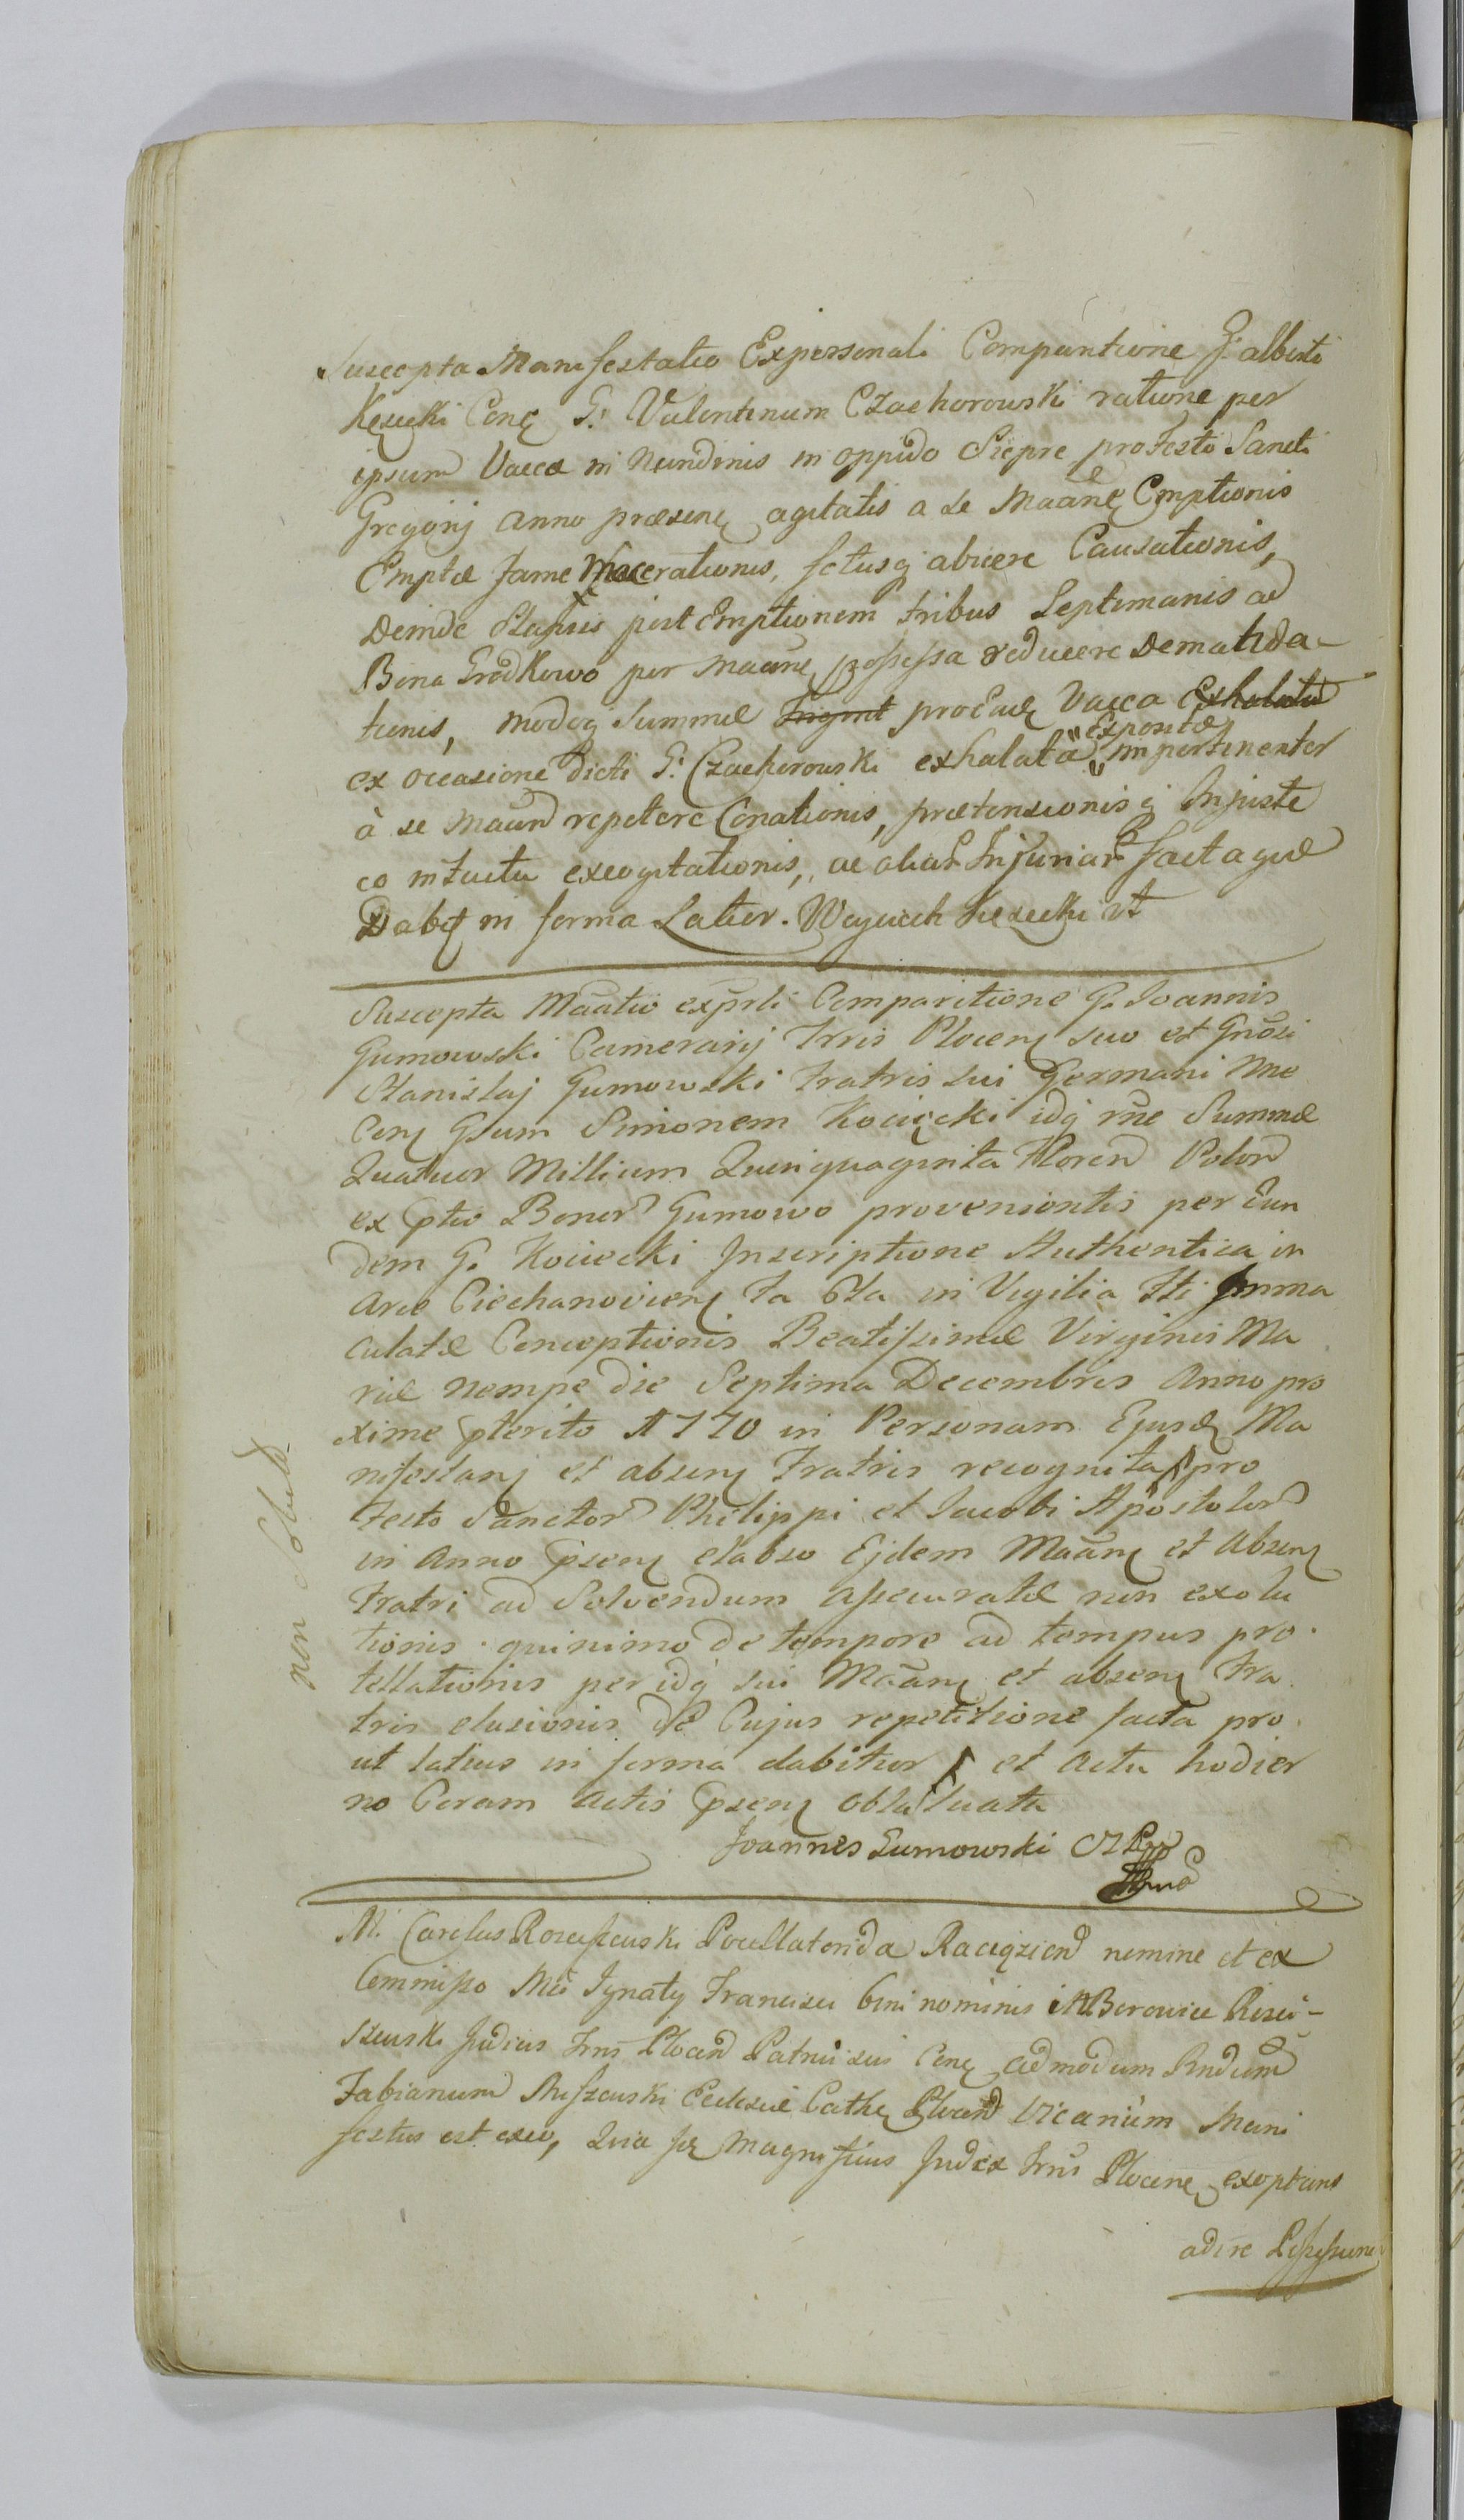 Suscepta Manifestatio Expersonali Comparitione G. alberti
Kęsicki Conę G. Valentinum Czachorowski ratione per
ipsum Vacca in Nundinis in oppido Siepre pro Festo Sancti
Gregorij anno præsenę agitatis a se Maanę Emptionis
Emptæ fame Macerationis, fetusq abicere Causationis,
Deinde Elapsis post Emptionem tribus Septimanis ad
Bona Grodkowo per Maanę possessa reducere Demanda-
tionis, modoq Summæ pro eadę Vacca Exhalata
ex occasione dicti G. Czachorowski exhalata Expositæ impertinenter
à se Maand repetere Conationis, prætensionisq Injuste
eo intuitu excogitationis, ac aliar Injuriar factaque
Dabit in forma Latior. Woyciech Kesicki vt
Suscepta Maatio exprli Comparitione G. Joannis
Gumowski Camerarij Trris Plocenę suo et Gnosi
Stanislaj Gumowski Fratris sui Germani Nne
Conę Gsum Simonem Kocięcki idq rne Summæ
Quatuor Millium Quinquaginta Floren Polon
ex Ptio Bonor Gumowo provenientis per Eun
dem G. Kociecki Inscriptione Authentica in
Arce Ciechanovienę Fa 6ta in Vigilia Fti Imma
culatæ Conceptionis Beatissimæ Virginis Ma
riæ nempe die Septima Decembris Anno pro
xime pterito 1770 in Personam Ejusdę Ma
nifestanę et absenę Fratris recognita pro
Festo Sanctor Philippi et Jacobi Apostolor
in Anno psenę elabso Ejdem Maanę et Absenę
Fratri ad Solvendum assecuratæ non exolu
tionis quinimo de tempore ad tempus pro
tellationis per idq sui Maanę et absenę Fra
tris elusionis de Cujus repetitione facta pro
ut latius in forma dabitur et Actu hodier
no Coram Actis psenę obla
Joannes Gumowski CZP
non Solut
M. Carolus Rosciszewski Pocillatorida Raciązen nomine et ex
Commisso Mci Ignaty Francisci bini nominis in Borowice Rosci-
szewski Judicis Trris Plocen Patrui sui Conę admodum Rndum
Fabianum Ruszewski Ecclesiæ Cathę Plocen Vicarium Mani
festus est eseo, Quia se Magnificus Judex Trris Plocenę exoptans
adire Possessione